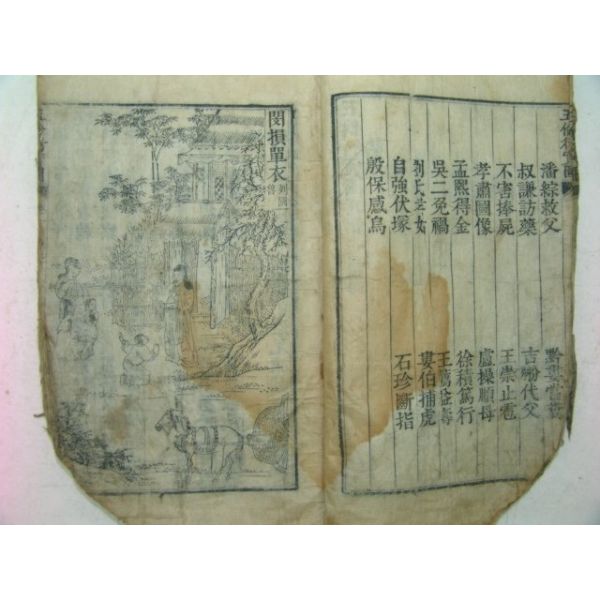 五倫行實圖
潘綜救父 黔婁嘗糞
叔謙訪藥 吉翂代父
不害捧屍 王崇止雹
孝肅圖像 盧操順母
孟熙得金 徐積篤行
吳二免禍 王薦益壽
劉氏孝女 婁伯捕虎
自強伏塚 石珍斷指
殷保感烏
閔損單衣 列國 魯